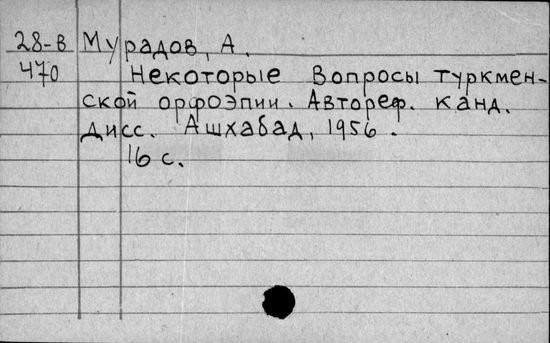 28-В Мурадов, А.
470 Некоторые вопросы туркмен-
ской орфоэпии. Автореф. канд.
дисс. Ашхабад, 1956.
16 с.